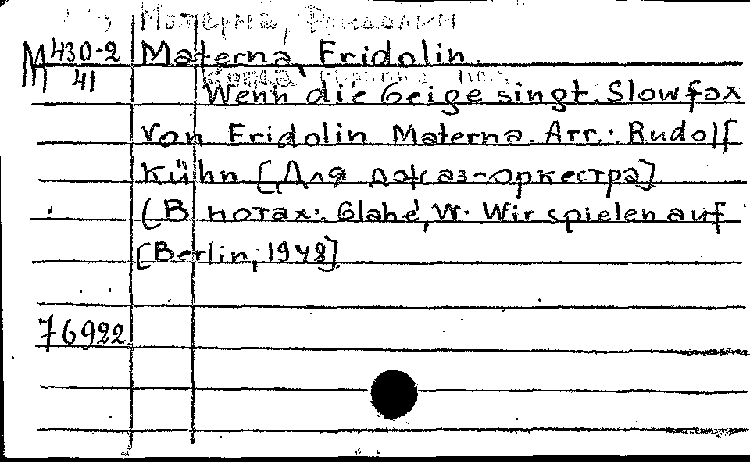 Матерна, Фридолин
M 430-2 Materna, Fridolin.
41
Wenn die Geige singt. Slowfox
von Fridolin Materna. Arr.: Rudolf
Kühn [Для джаз-оркестра]
(В нотах: Glahé, W. Wir spielen auf
[Berlin, 1948]
76922